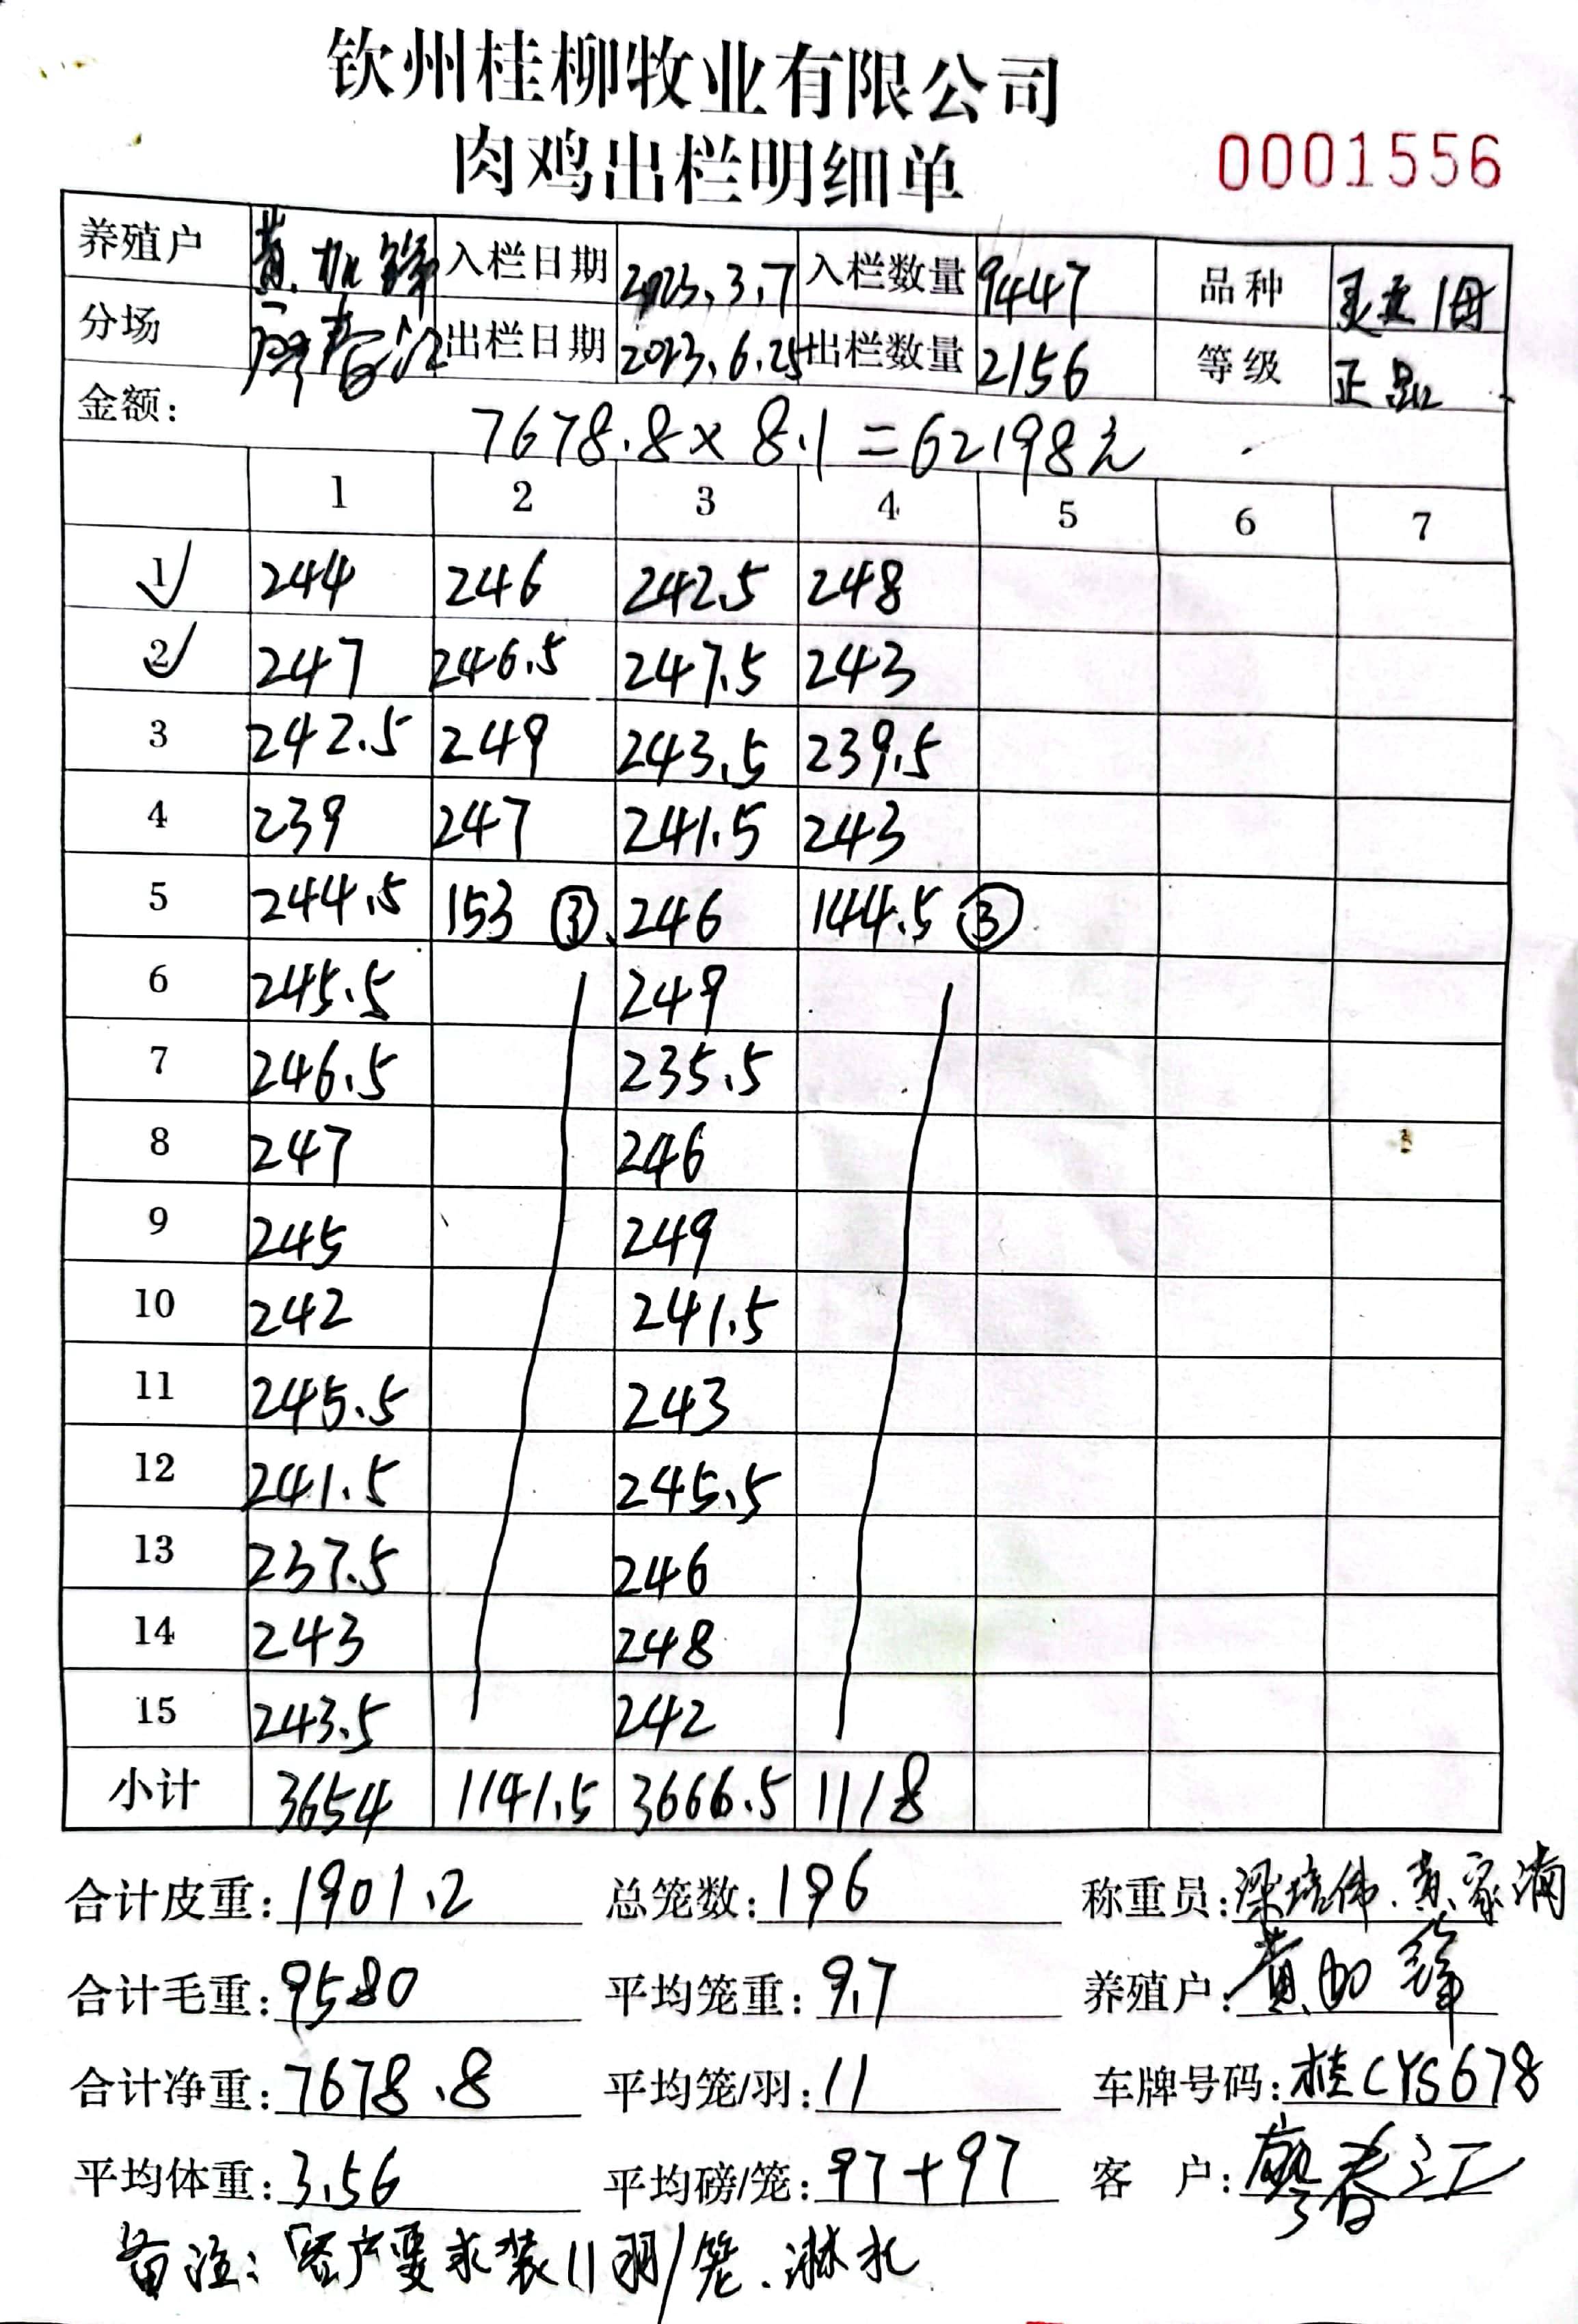 钦州桂柳牧业有限公司
肉鸡出栏明细单
0001556
养殖户 黄加锋 入栏日期 2023.3.7 入栏数量 9447 品种
分场 廖春江 出栏日期 2023.6.25 出栏数量 2156 等级 正品
金额: 7678.8×8.1=62198元
1 2 3 4 5 6 7
1 244 246 242.5 248
2 247 246.5 247.5 243
3 242.5 249 243.5 239.5
4 239 247 241.5 243
5 244.5 153 ③ 246 144.5 ③
6 245.5 249
7 246.5 235.5
8 247 246
9 245 249
10 242 241.5
11 245.5 243
12 241.5 245.5
13 237.5 246
14 243 248
15 243.5 242
小计 3654 1141.5 3666.5 1118
合计皮重: 1901.2 总笼数: 196 称重员: 梁培伟.黄家满
合计毛重: 9580 平均笼重: 9.7 养殖户: 黄加锋
合计净重: 7678.8 平均笼/羽: 11 车牌号码: 桂CYS678
平均体重: 3.56 平均磅/笼: 97+97 客 户: 廖春江
备注: 客户要求装11羽/笼.淋水